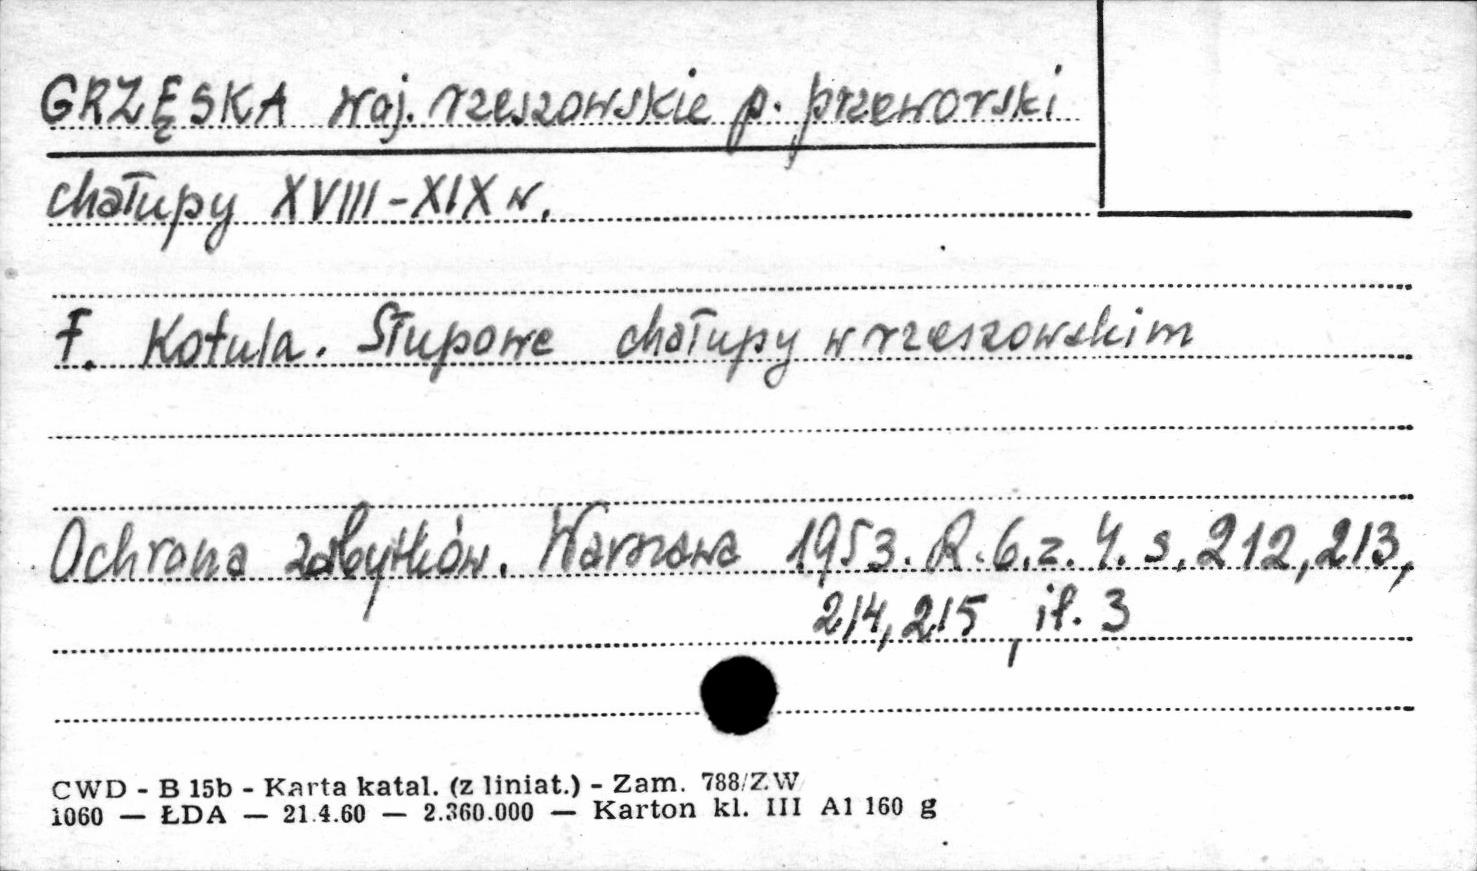 GRZĘSKA woj. rzeszowskie p. przeworski
chałupy XVIII-XIX w.
F. Kotula. Słupowe chałupy w rzeszowskim
Ochrona zabytków. Warszawa 1953. R. 6. z. 4. s. 212, 213,
214, 215, il. 3
CWD - B 15b - Karta katal. (z liniat.) - Zam. 788/ZW
1060 — ŁDA — 21.4.60 — 2.360.000 — Karton kl. III A1 160 g